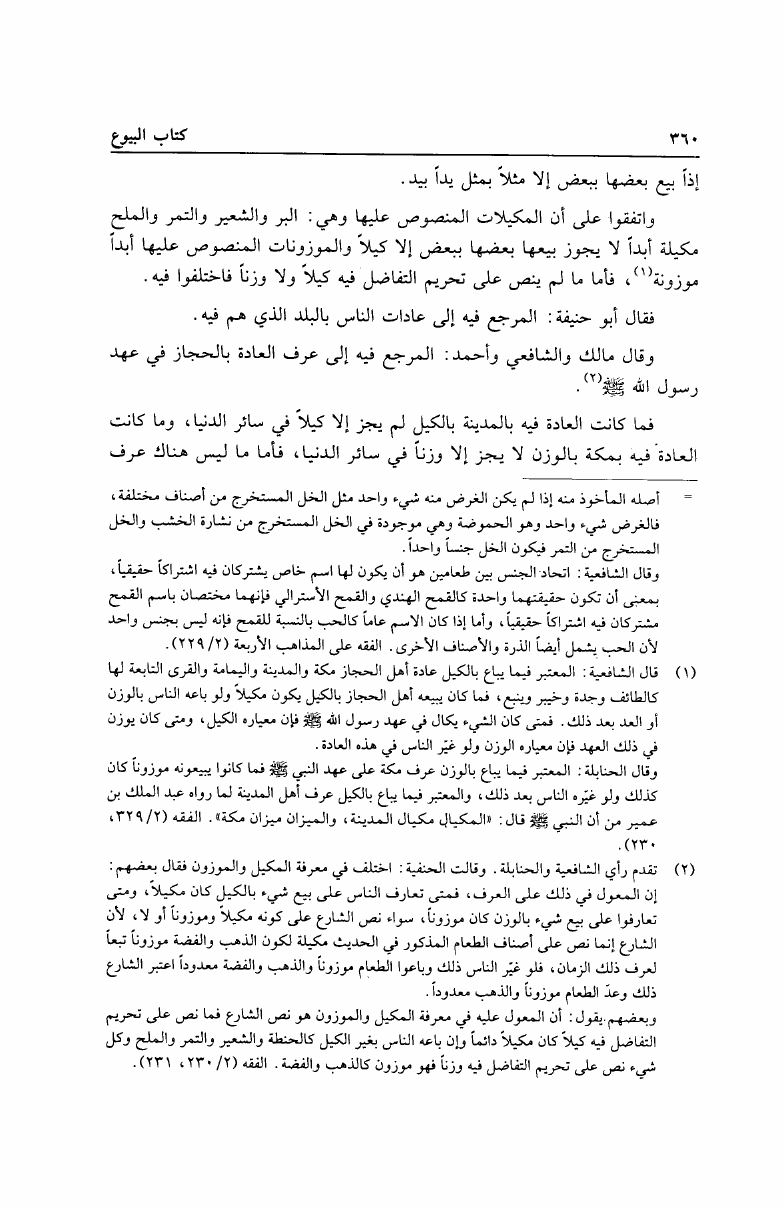 ٣٦٠ كتاب البيوع
إذاً بيع بعضها ببعض إلا مثلاً بمثل يداً بيد.
واتفقوا على أن المكيلات المنصوص عليها وهي: البر والشعير والتمر والملح
مكيلة أبداً لا يجوز بيعها بعضها ببعض إلا كيلاً والموزونات المنصوص عليها أبداً
موزونة(١)، فأما ما لم ينص على تحريم التفاضل فيه كيلاً ولا وزناً فاختلفوا فيه.
فقال أبو حنيفة: المرجع فيه إلى عادات الناس بالبلد الذي هم فيه.
وقال مالك والشافعي وأحمد: المرجع فيه إلى عرف العادة بالحجاز في عهد
رسول الله ﷺ(٢).
فما كانت العادة فيه بالمدينة بالكيل لم يجز إلا كيلاً في سائر الدنيا، وما كانت
العادة فيه بمكة بالوزن لا يجز إلا وزناً في سائر الدنيا، فأما ما ليس هناك عرف
= أصله المأخوذ منه إذا لم يكن الغرض منه شيء واحد مثل الخل المستخرج من أصناف مختلفة،
فالغرض شيء واحد وهو الحموضة وهي موجودة في الخل المستخرج من نشارة الخشب والخل
المستخرج من التمر فيكون الخل جنساً واحداً.
وقال الشافعية: اتحاد الجنس بين طعامين هو أن يكون لها اسم خاص يشتركان فيه اشتراكاً حقيقياً،
بمعنى أن تكون حقيقتهما واحدة كالقمح الهندي والقمح الأسترالي فإنهما مختصان باسم القمح
مشتركان فيه اشتراكاً حقيقياً، وأما إذا كان الاسم عاماً كالحب بالنسبة للقمح فإنه ليس بجنس واحد
لأن الحب يشمل أيضاً الذرة والأصناف الأخرى. الفقه على المذاهب الأربعة (٢/٢٢٩).
(١) قال الشافعية: المعتبر فيما يباع بالكيل عادة أهل الحجاز مكة والمدينة واليمامة والقرى التابعة لها
كالطائف وجدة وخيبر وينبع، فما كان يبيعه أهل الحجاز بالكيل يكون مكيلاً ولو باعه الناس بالوزن
أو العد بعد ذلك. فمتى كان الشيء يكال في عهد رسول الله ﷺ فإن معياره الكيل، ومتى كان يوزن
في ذلك العهد فإن معياره الوزن ولو غيّر الناس في هذه العادة.
وقال الحنابلة: المعتبر فيما يباع بالوزن عرف مكة على عهد النبي ﷺ فما كانوا يبيعونه موزوناً كان
كذلك ولو غيّره الناس بعد ذلك، والمعتبر فيما يباع بالكيل عرف أهل المدينة لما رواه عبد الملك بن
عمير من أن النبي ﷺ قال: «المكيال مكيال المدينة، والميزان ميزان مكة». الفقه (٢/٣٢٩،
٢٣٠).
(٢) تقدم رأي الشافعية والحنابلة. وقالت الحنفية: اختلف في معرفة المكيل والموزون فقال بعضهم:
إن المعول في ذلك على العرف، فمتى تعارف الناس على بيع شيء بالكيل كان مكيلاً، ومتى
تعارفوا على بيع شيء بالوزن كان موزوناً، سواء نص الشارع على كونه مكيلاً وموزوناً أو لا، لأن
الشارع إنما نص على أصناف الطعام المذكور في الحديث مكيلة لكون الذهب والفضة موزوناً تبعاً
لعرف ذلك الزمان، فلو غيّر الناس ذلك وباعوا الطعام موزوناً والذهب والفضة معدوداً اعتبر الشارع
ذلك وعدّ الطعام موزوناً والذهب معدوداً.
وبعضهم يقول: أن المعول عليه في معرفة المكيل والموزون هو نص الشارع فما نص على تحريم
التفاضل فيه كيلاً كان مكيلاً دائماً وإن باعه الناس بغير الكيل كالحنطة والشعير والتمر والملح وكل
شيء نص على تحريم التفاضل فيه وزناً فهو موزون كالذهب والفضة. الفقه (٢/٢٣٠، ٢٣١).